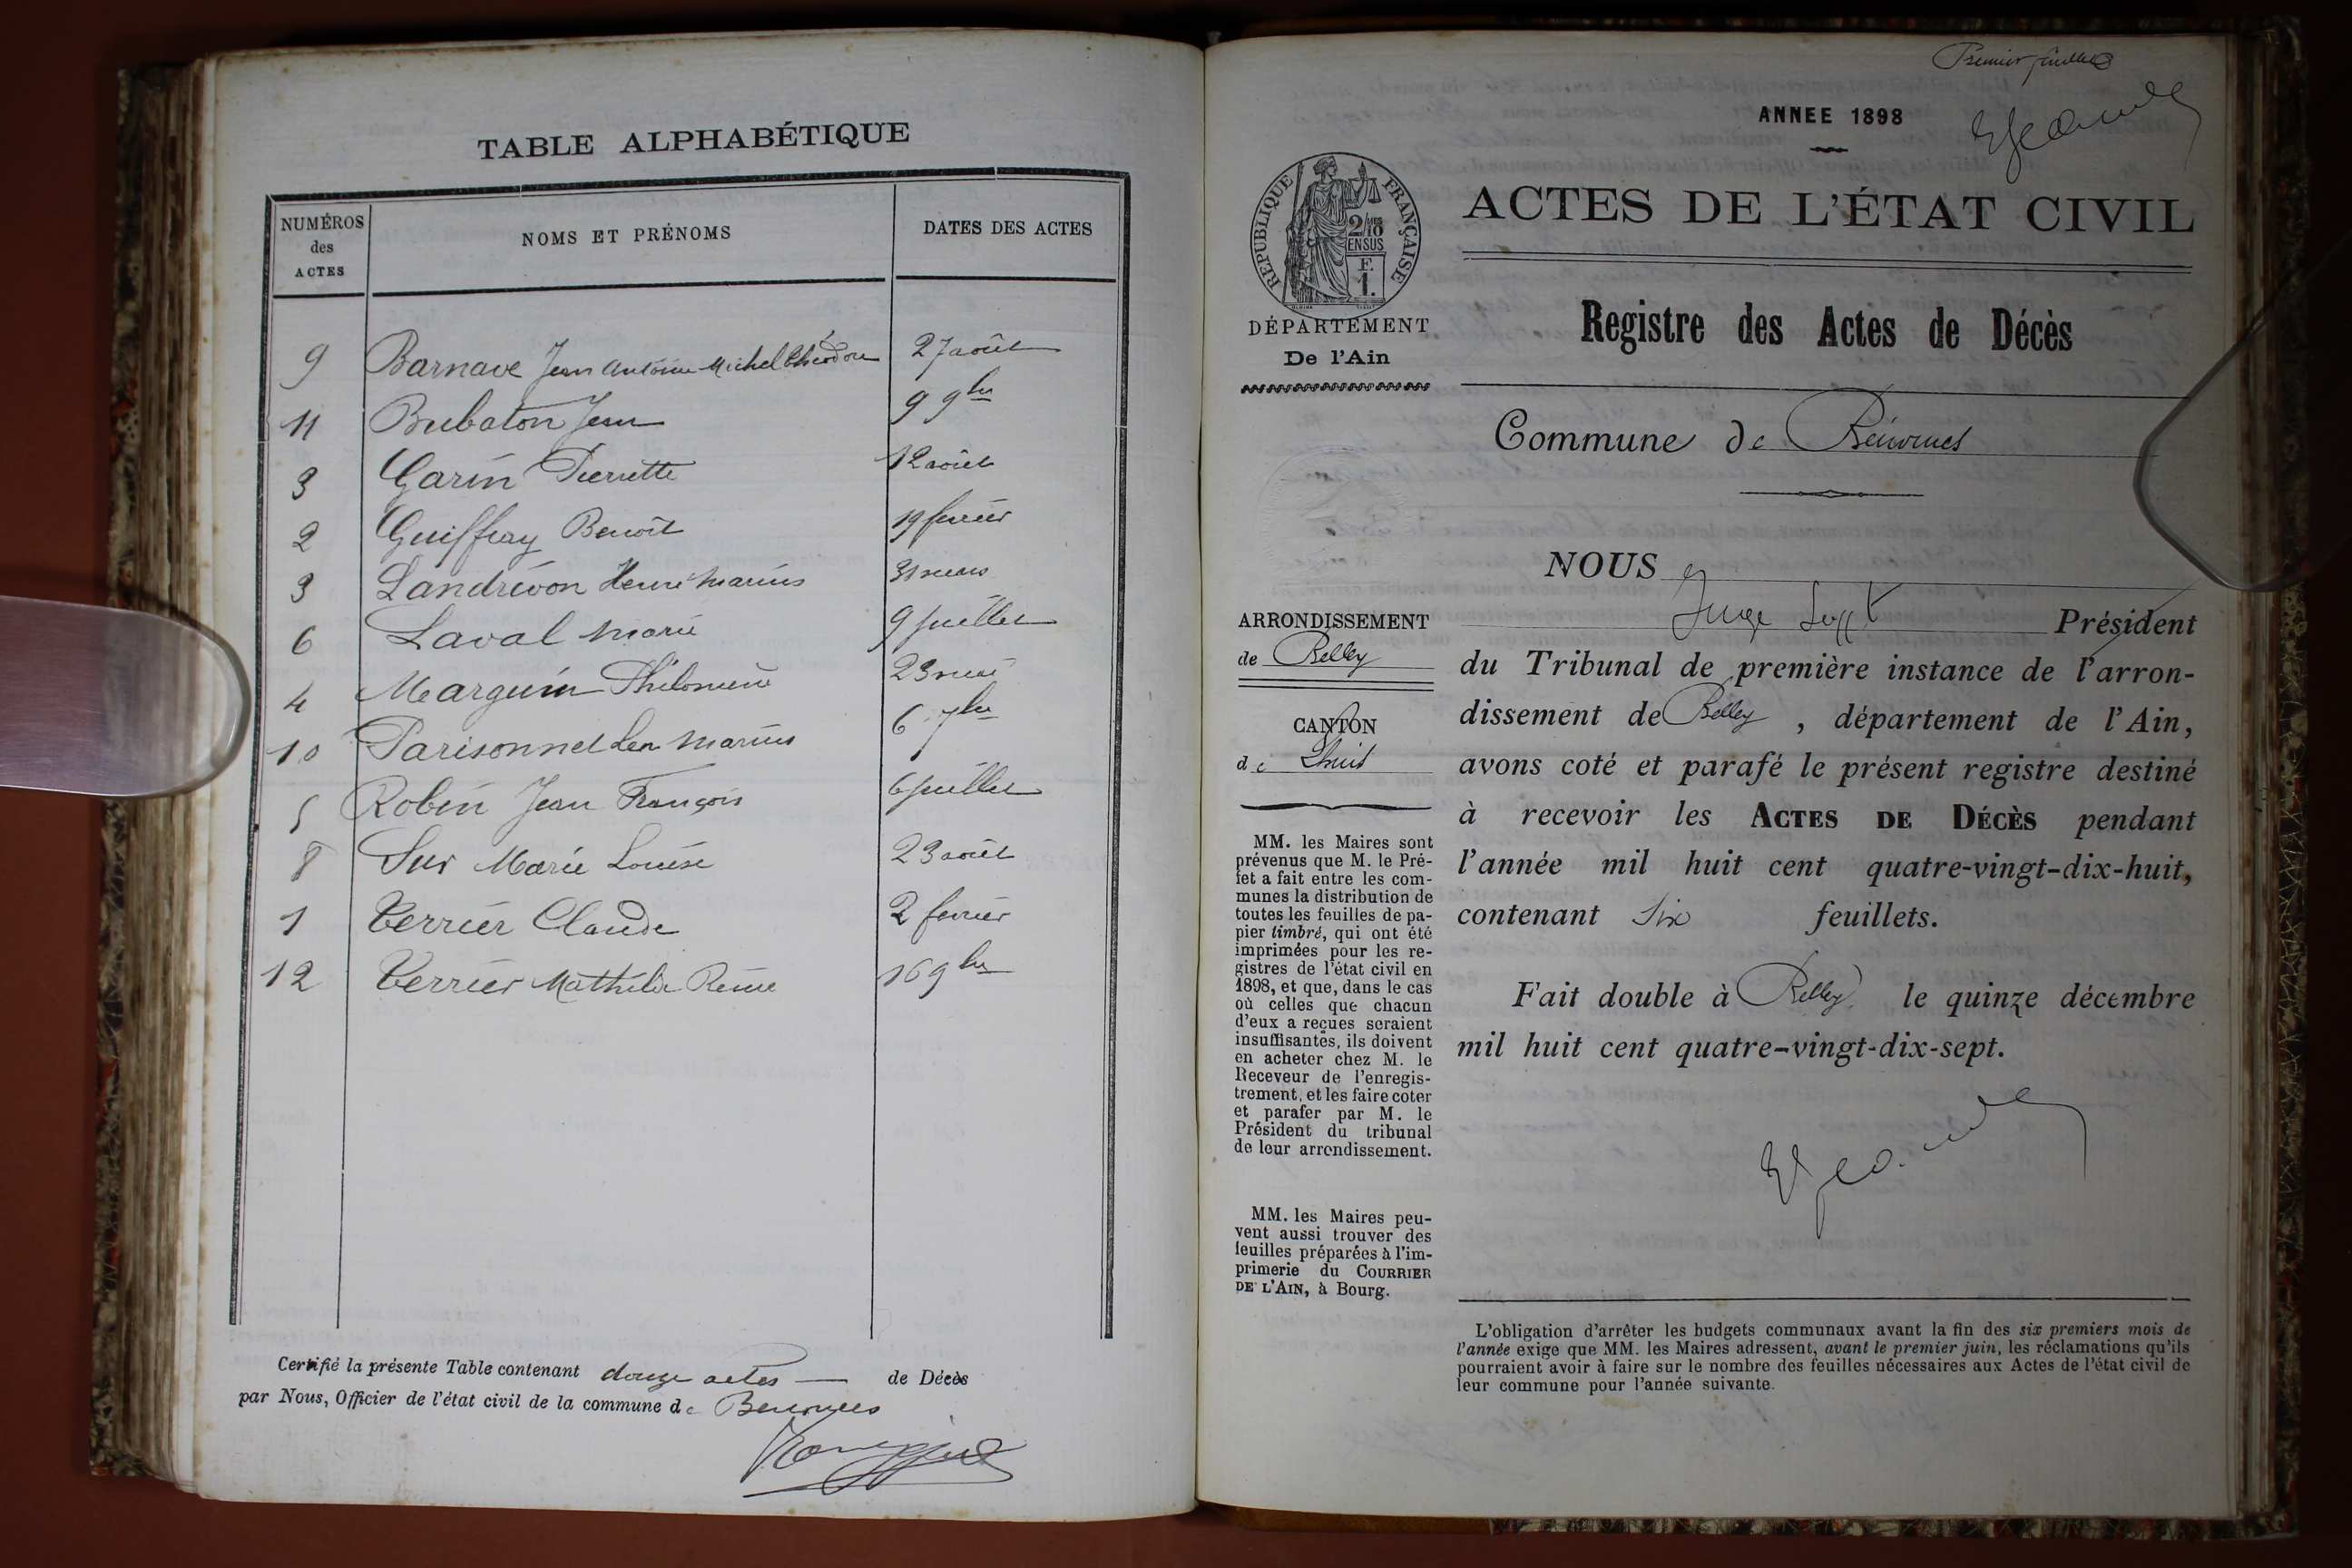 TABLE ALPHABÉTIQUE
NUMÉROS des ACTES
NOMS ET PRÉNOMS
DATES DES ACTES
9 Barnave Jean Antoine Michel Théodore 27 août
11 Bubaton Jean 9 9bre
3 Garin Pierrette 12 août
2 Guiffray Benoît 19 février
3 Landrivon Henri Marius 31 mars
6 Laval Marie 9 juillet
4 Marguin Philomène 23 mai
10 Parisonnet Marius 6 7bre
5 Robin Jean François 6 juillet
8 Sur Marie Louise 23 août
1 Verrier Claude 2 février
12 Verrier Mathilde 16 9bre
Certifié la présente Table contenant douze actes — de Décès
par Nous, Officier de l'état civil de la commune de Benonces
Premier feuillet
ANNEE 1898
ACTES DE L'ÉTAT CIVIL
RÉPUBLIQUE FRANÇAISE
2/10 EN SUS
F. 1.
DÉPARTEMENT
De l'Ain
Registre des Actes de Décès
Commune de Bénonces
NOUS
Juge Suppt Président
du Tribunal de première instance de l'arron-
dissement de Belley, département de l'Ain,
avons coté et parafé le présent registre destiné
à recevoir les ACTES DE DÉCÈS pendant
l'année mil huit cent quatre-vingt-dix-huit,
contenant Six feuillets.
Fait double à Belley le quinze décembre
mil huit cent quatre-vingt-dix-sept.
ARRONDISSEMENT
de Belley
CANTON
de Lhuis
MM. les Maires sont
prévenus que M. le Pré-
fet a fait entre les com-
munes la distribution de
toutes les feuilles de pa-
pier timbré, qui ont été
imprimées pour les re-
gistres de l'état civil en
1898, et que, dans le cas
où celles que chacun
d'eux a reçues seraient
insuffisantes, ils doivent
en acheter chez M. le
Receveur de l'enregis-
trement, et les faire coter
et parafer par M. le
Président du tribunal
de leur arrondissement.
MM. les Maires peu-
vent aussi trouver des
feuilles préparées à l'im-
primerie du COURRIER
DE L'AIN, à Bourg.
L'obligation d'arrêter les budgets communaux avant la fin des six premiers mois de
l'année exige que MM. les Maires adressent, avant le premier juin, les réclamations qu'ils
pourraient avoir à faire sur le nombre des feuilles nécessaires aux Actes de l'état civil de
leur commune pour l'année suivante.